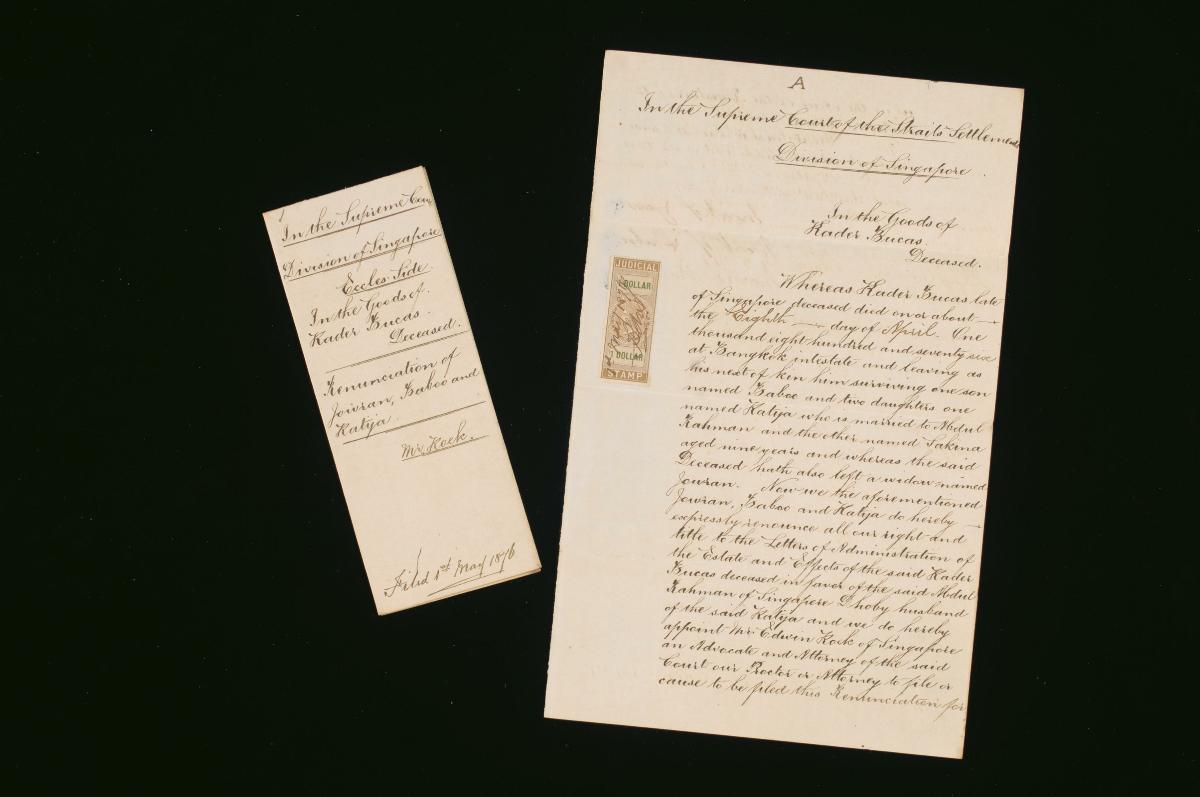 In the Supreme Cour
Division of Singapore
Eccles: Side.
In the Goods of
Kader Bucas.
Deceased.
Renunciation of
Jowran, Baboo and
Katija
Mr. Koek.
Filed 1st May 1876
A
In the Supreme Court of the Straits Settlements
Division of Singapore.
In the Goods of
Kader Bucas.
Deceased.
JUDICIAL
1 DOLLAR
1 DOLLAR
STAMP
Whereas Kader Bucas late
of Singapore deceased died on or about —
the Eighth — day of April. One
thousand eight hundred and seventy six
at Bangkok intestate and leaving as
his next of kin him surviving one son
named Baboo and two daughters one
named Katija who is married to Abdul
Rahman and the other named Sakina
aged nine years and whereas the said
Deceased hath also left a widow named
Jowran. Now we the aforementioned
Jowran, Baboo and Katija do hereby —
expressly renounce all our right and
title to the Letters of Administration of
the Estate and Effects of the said Kader
Bucas deceased in favor of the said Abdul
Rahman of Singapore Dhoby husband
of the said Katija and we do hereby
appoint Mr. Edwin Koek of Singapore
an Advocate and Attorney of the said
Court our Proctor or Attorney to file or
cause to be filed this Renunciation for